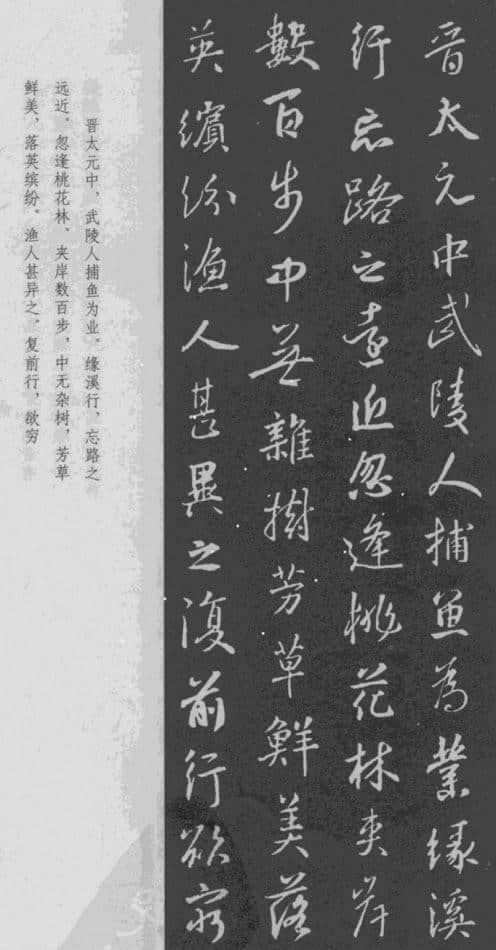 晋太元中武陵人捕鱼為業緣溪
行忘路之遠近忽逢桃花林夾岸
數百步中無雜樹芳草鮮美落
英繽紛漁人甚異之復前行欲窮
晋太元中，武陵人捕鱼为业。缘溪行，忘路之
远近。忽逢桃花林，夹岸数百步，中无杂树，芳草
鲜美，落英缤纷。渔人甚异之。复前行，欲穷